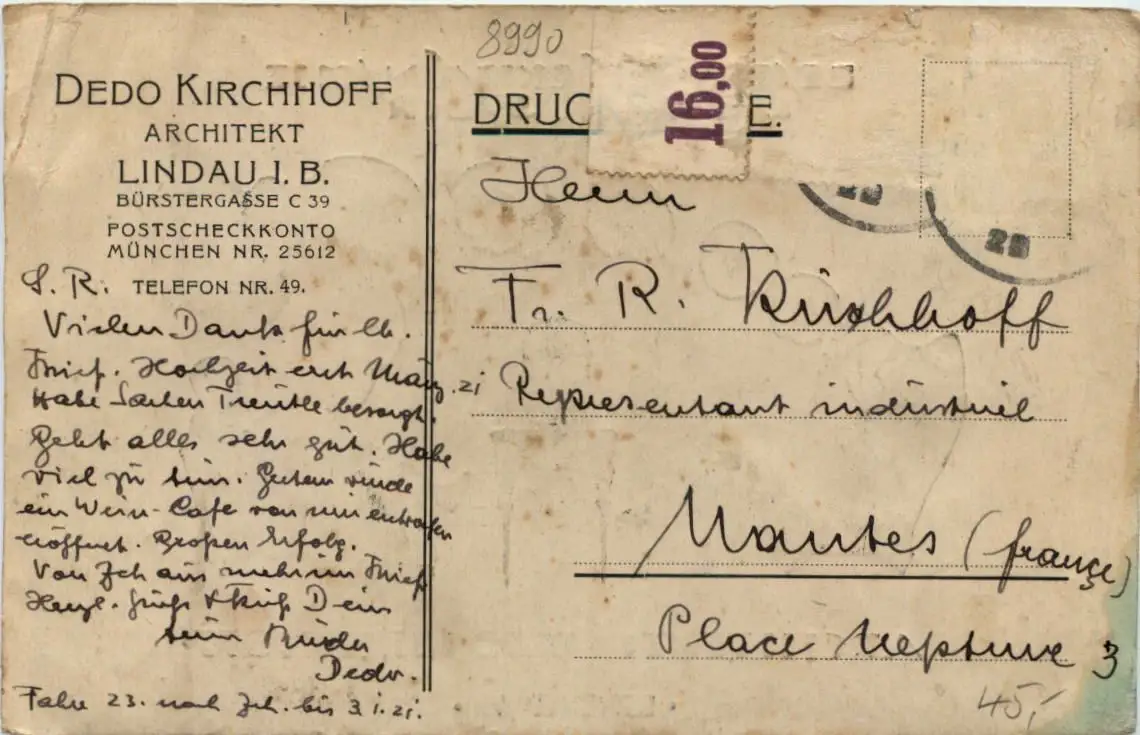 8990
DEDO KIRCHHOFF
ARCHITEKT
LINDAU I. B.
BÜRSTERGASSE C 39
POSTSCHECKKONTO
MÜNCHEN NR. 25612
TELEFON NR. 49.
L. R.
Vielen Dank für lb.
Brief. Hochzeit erst März. 21
Habe Sachen Treutle besorgt.
Geht alles sehr gut. Habe
viel zu tun. Gestern wurde
ein Wein-Cafe von mir entworfen
eröffnet. Großen Erfolg.
Von Zch aus mehr im Brief
Herzl. Gruß & Kuß Dein
Bruder
Dedo.
Fahre 23. nach Zch. bis 3.1.21.
DRUC
E.
16,00
Herrn
Fr. R. Kirchhoff
Representant industriel
Nantes (françe)
Place Neptune 3
45,-